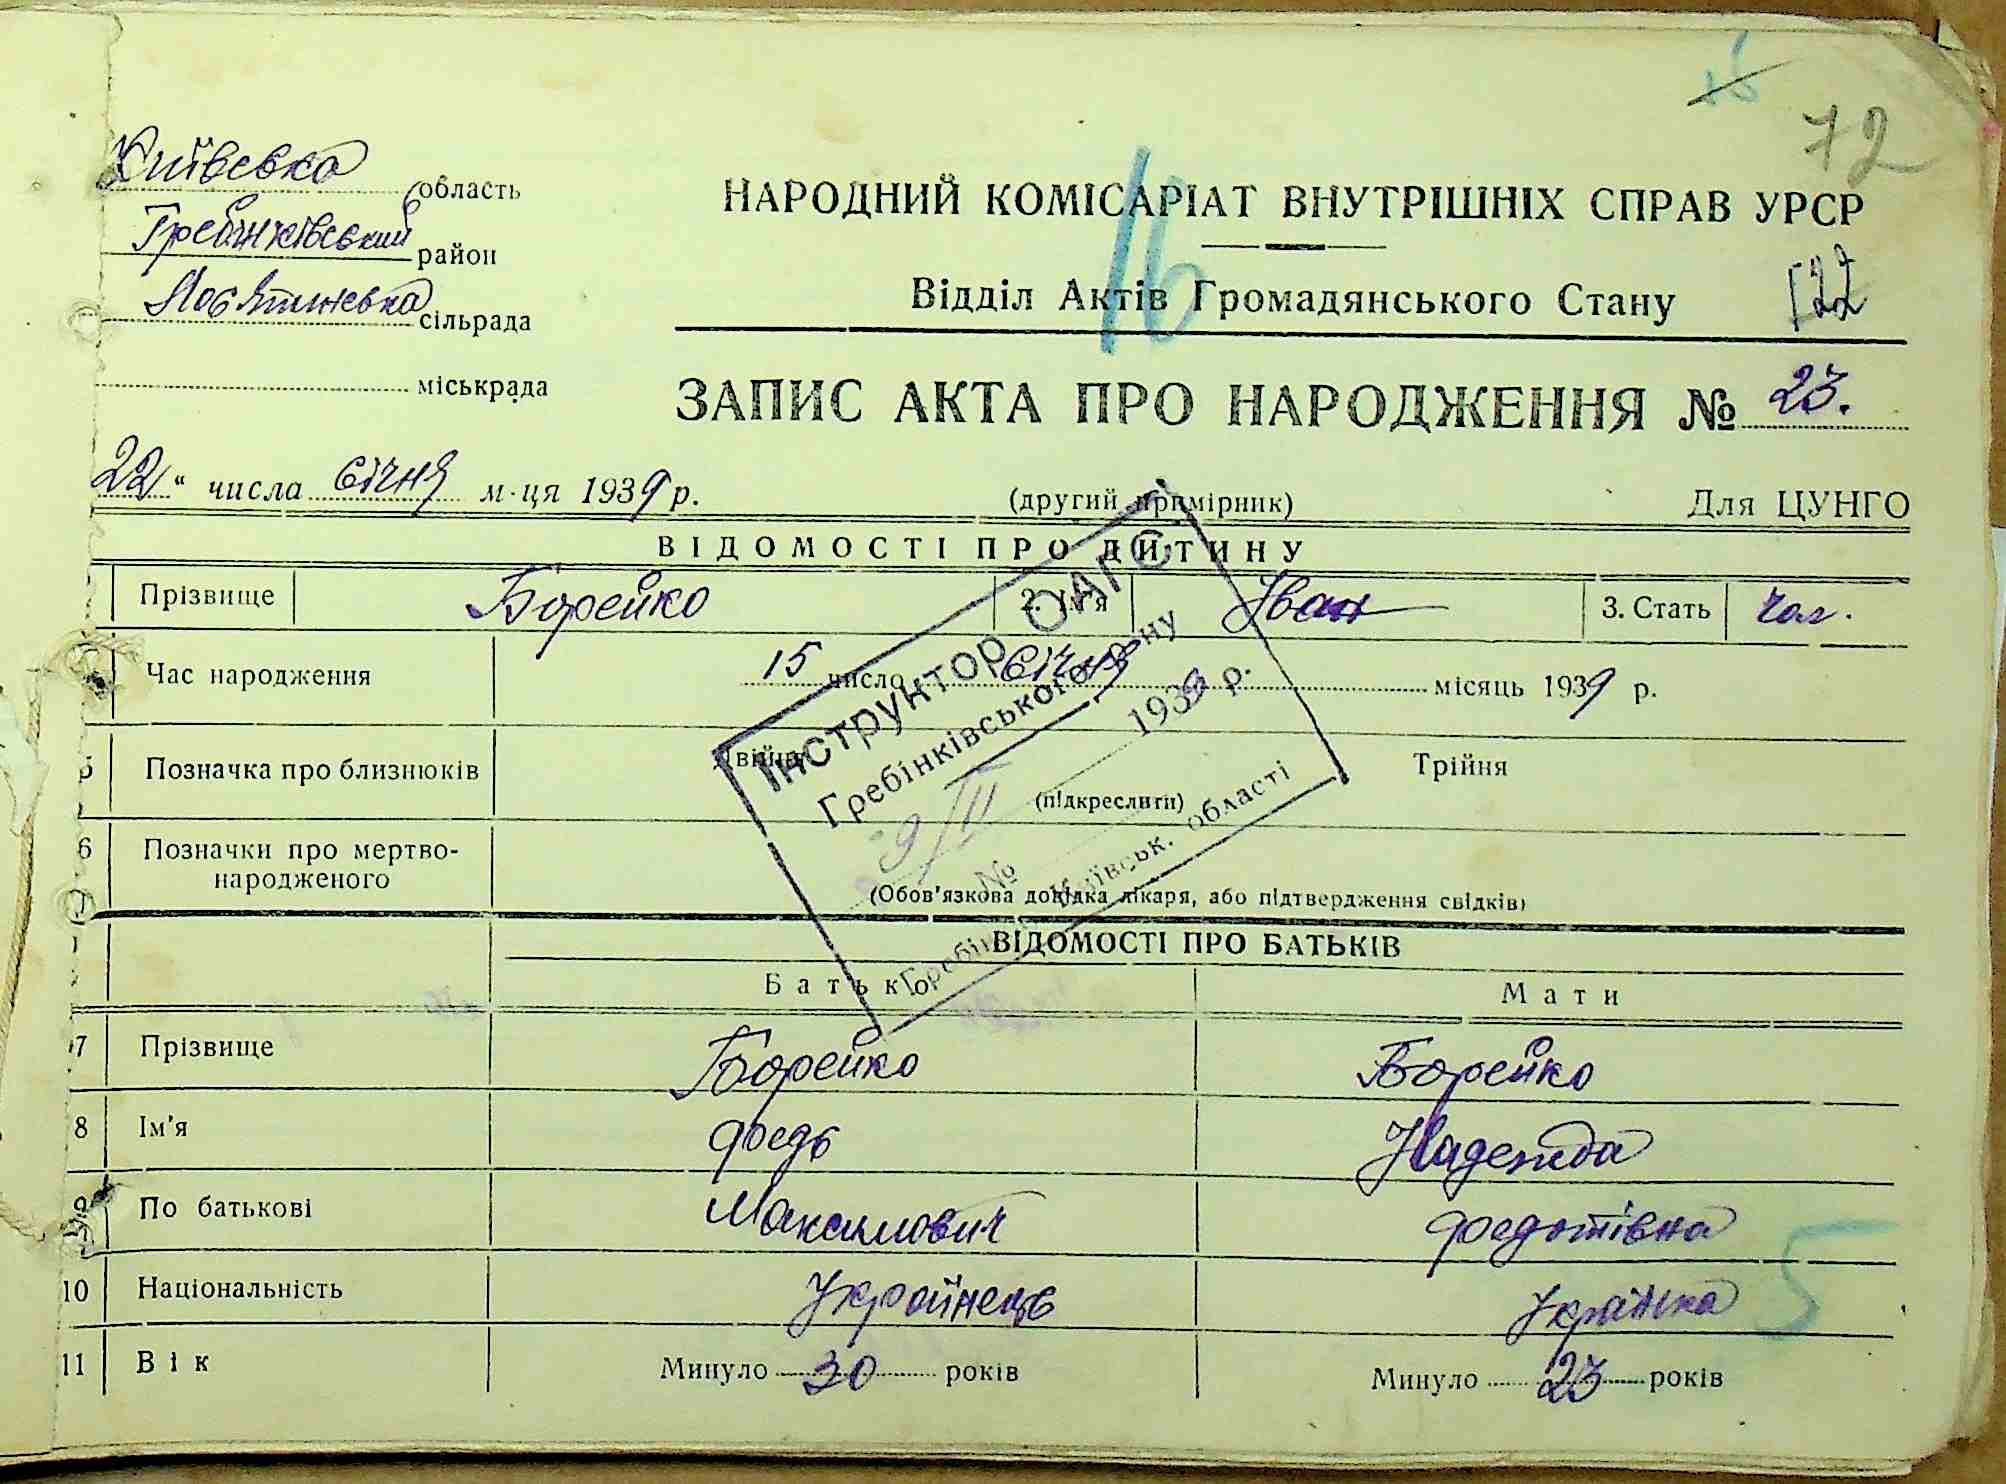 72
Київська область
Гребінківський район
сільрада
міськрада
НАРОДНИЙ КОМІСАРІАТ ВНУТРІШНІХ СПРАВ УРСР
16
Відділ Актів Громадянського Стану
122
ЗАПИС АКТА ПРО НАРОДЖЕННЯ № 23.
22 " числа січня м-ця 1939 р.
(другий примірник)
Для ЦУНГО
ВІДОМОСТІ ПРО ДИТИНУ
Прізвище Борейко 2. Ім'я Іван 3. Стать чол.
Час народження 15 число Січня місяць 1939 р.
5 Позначка про близнюків Двійня Трійня
(підкреслити)
6 Позначки про мертво-
народженого
(Обов'язкова довідка лікаря, або підтвердження свідків)
Інструктор ОАГС
Гребінківського р-ну
1939 р.
№
Київськ. області
ВІДОМОСТІ ПРО БАТЬКІВ
Батько Мати
7 Прізвище Борейко Борейко
8 Ім'я Федь Надежда
9 По батькові Максимович Федотівна
10 Національність Українець Українка
5
11 Вік Минуло 30 років Минуло 23 років